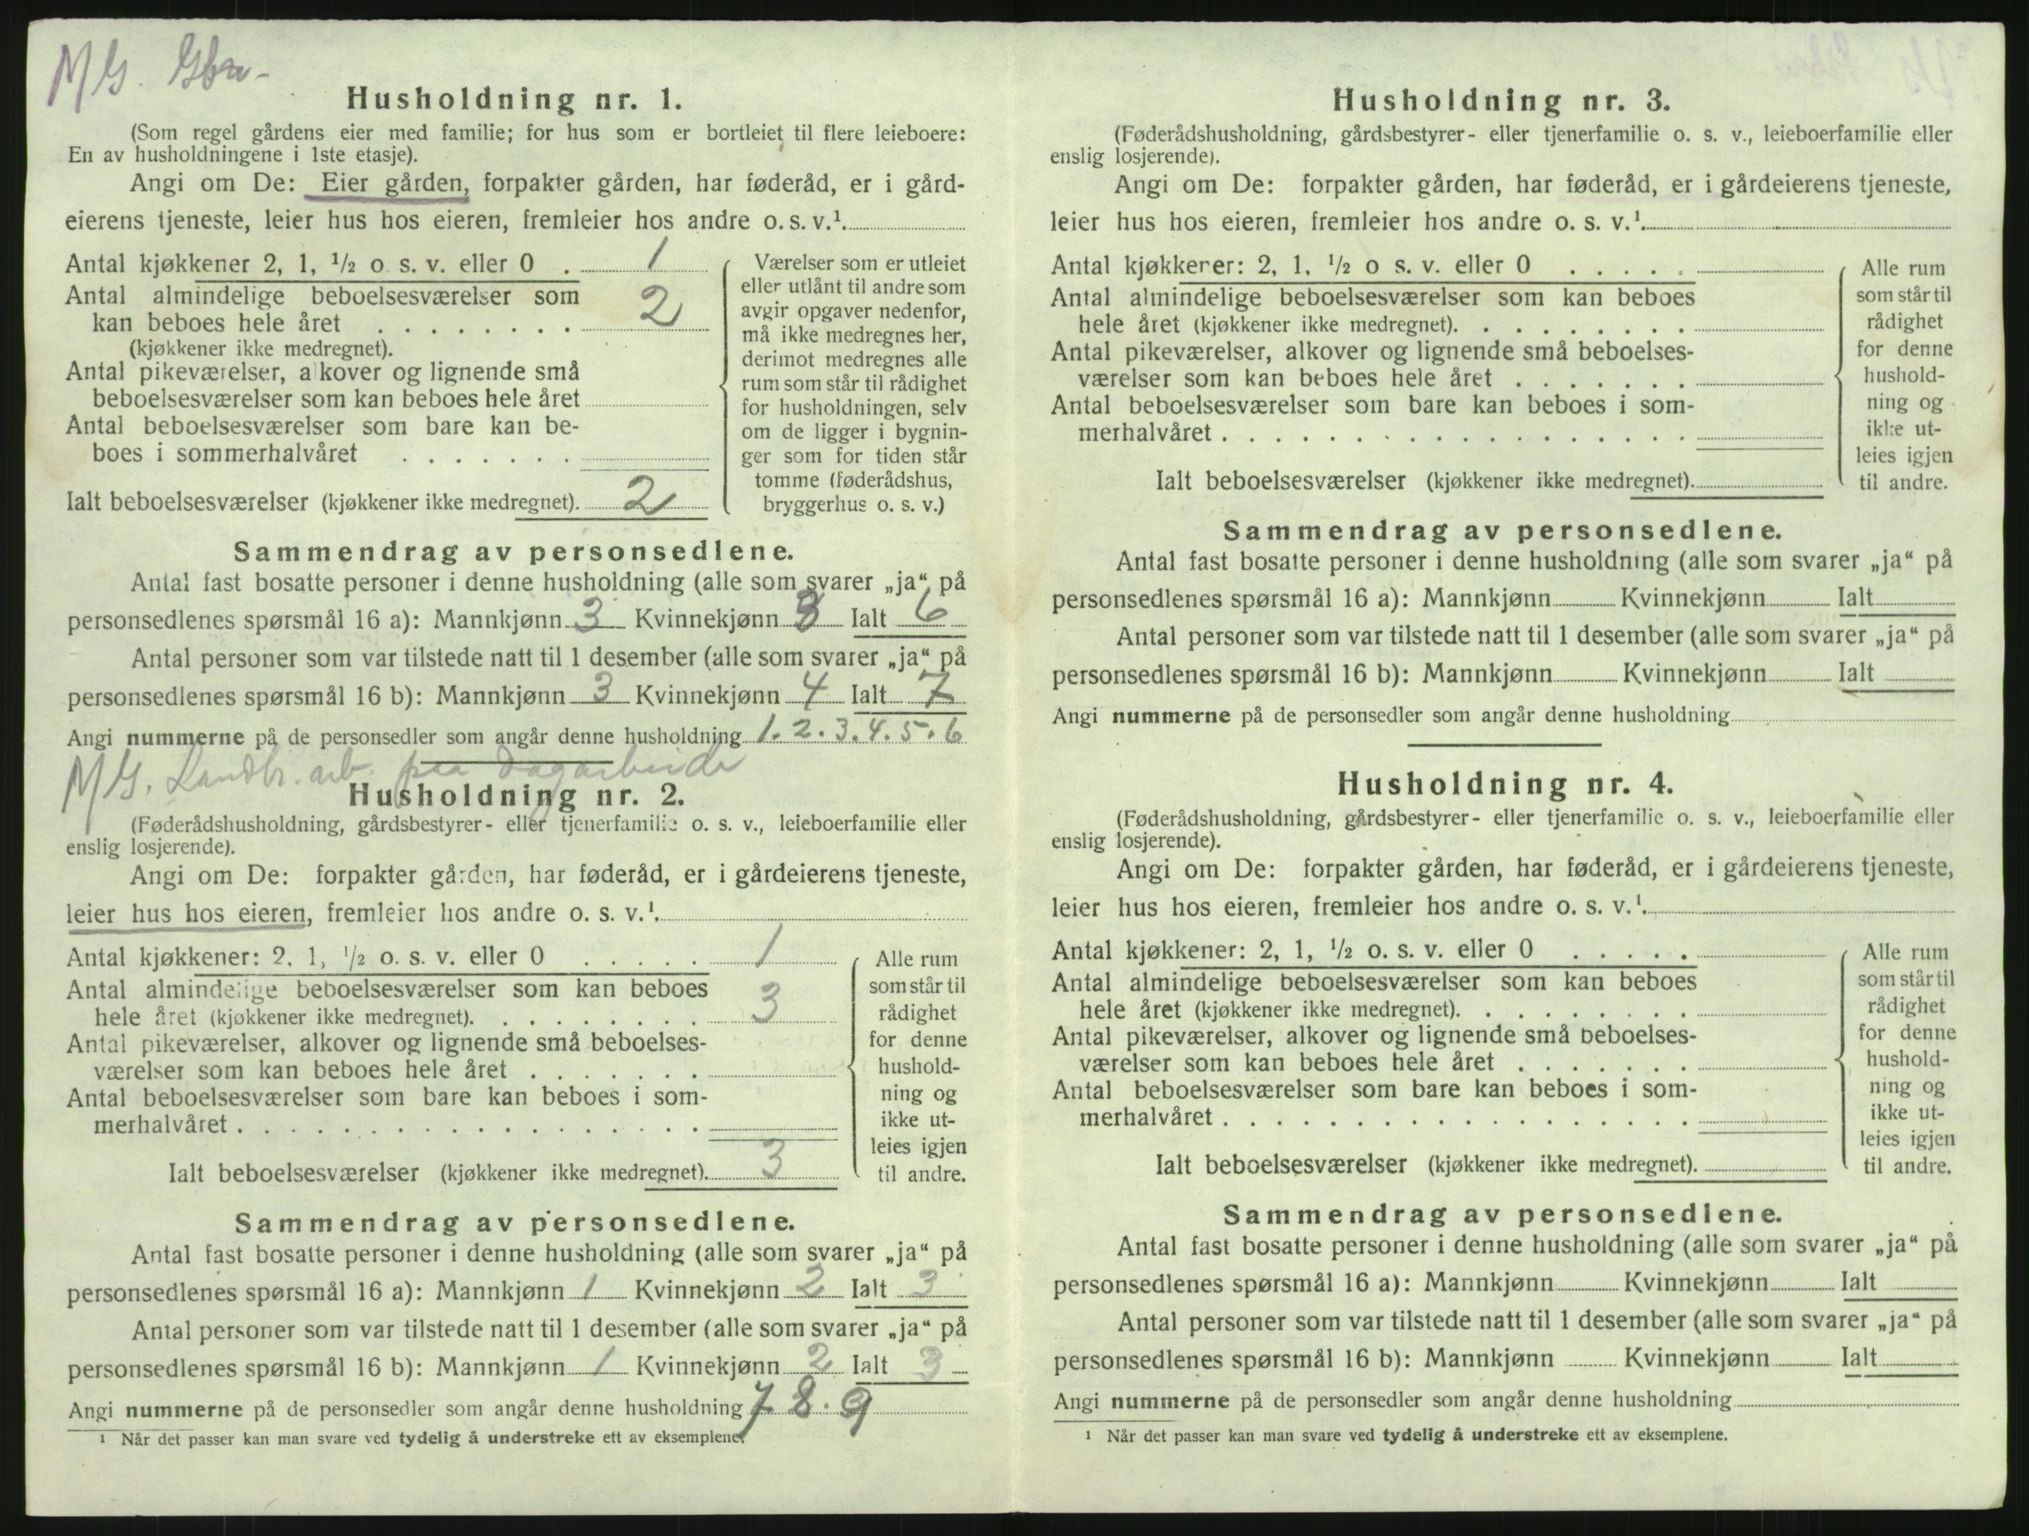 MG. Gbr-
Husholdning nr. 1.
(Som regel gårdens eier med familie; for hus som er bortleiet til flere leieboere:
En av husholdningene i 1ste etasje).
Angi om De: Eier gården, forpakter gården, har føderåd, er i gård-
eierens tjeneste, leier hus hos eieren, fremleier hos andre o. s. v.¹
Antal kjøkkener 2, 1, ½ o s. v. eller 0 . 1
Antal almindelige beboelsesværelser som
kan beboes hele året . . . . . . . . 2
(kjøkkener ikke medregnet).
Antal pikeværelser, alkover og lignende små
beboelsesværelser som kan beboes hele året
Antal beboelsesværelser som bare kan be-
boes i sommerhalvåret . . . . . . .
Ialt beboelsesværelser (kjøkkener ikke medregnet). 2
Værelser som er utleiet
eller utlånt til andre som
avgir opgaver nedenfor,
må ikke medregnes her,
derimot medregnes alle
rum som står til rådighet
for husholdningen, selv
om de ligger i bygnin-
ger som for tiden står
tomme (føderådshus,
bryggerhus o. s. v.)
Sammendrag av personsedlene.
Antal fast bosatte personer i denne husholdning (alle som svarer „ja“ på
personsedlenes spørsmål 16 a): Mannkjønn 3 Kvinnekjønn 3 Ialt 6
Antal personer som var tilstede natt til 1 desember (alle som svarer „ja“ på
personsedlenes spørsmål 16 b): Mannkjønn 3 Kvinnekjønn 4 Ialt 7
Angi nummerne på de personsedler som angår denne husholdning 1. 2. 3. 4. 5. 6
MG. Landbr. arb. paa dagarbeide
Husholdning nr. 2.
(Føderådshusholdning, gårdsbestyrer- eller tjenerfamilie o. s. v., leieboerfamilie eller
enslig losjerende).
Angi om De: forpakter gården, har føderåd, er i gårdeierens tjeneste,
leier hus hos eieren, fremleier hos andre o. s. v.¹
Antal kjøkkener: 2, 1, ½ o. s. v. eller 0 . . . . . 1
Antal almindelige beboelsesværelser som kan beboes
hele året (kjøkkener ikke medregnet). . . . . . . . . 3
Antal pikeværelser, alkover og lignende små beboelses-
værelser som kan beboes hele året . . . . . . .
Antal beboelsesværelser som bare kan beboes i som-
merhalvåret . . . . . . . . . . . . . . . . . .
Ialt beboelsesværelser (kjøkkener ikke medregnet). 3
Alle rum
som står til
rådighet
for denne
hushold-
ning og
ikke ut-
leies igjen
til andre.
Sammendrag av personsedlene.
Antal fast bosatte personer i denne husholdning (alle som svarer „ja“ på
personsedlenes spørsmål 16 a): Mannkjønn 1 Kvinnekjønn 2 Ialt 3
Antal personer som var tilstede natt til 1 desember (alle som svarer „ja“ på
personsedlenes spørsmål 16 b): Mannkjønn 1 Kvinnekjønn 2 Ialt 3
Angi nummerne på de personsedler som angår denne husholdning 7. 8. 9
¹ Når det passer kan man svare ved tydelig å understreke ett av eksemplene.
Husholdning nr. 3.
(Føderådshusholdning, gårdsbestyrer- eller tjenerfamilie o. s. v., leieboerfamilie eller
enslig losjerende).
Angi om De: forpakter gården, har føderåd, er i gårdeierens tjeneste,
leier hus hos eieren, fremleier hos andre o. s. v.¹
Antal kjøkkener: 2, 1, ½ o s. v. eller 0 . . . . .
Antal almindelige beboelsesværelser som kan beboes
hele året (kjøkkener ikke medregnet). . . . . . . . .
Antal pikeværelser, alkover og lignende små beboelses-
værelser som kan beboes hele året . . . . . . .
Antal beboelsesværelser som bare kan beboes i som-
merhalvåret . . . . . . . . . . . . . . . . . .
Ialt beboelsesværelser (kjøkkener ikke medregnet).
Alle rum
som står til
rådighet
for denne
hushold-
ning og
ikke ut-
leies igjen
til andre.
Sammendrag av personsedlene.
Antal fast bosatte personer i denne husholdning (alle som svarer „ja“ på
personsedlenes spørsmål 16 a): Mannkjønn Kvinnekjønn Ialt
Antal personer som var tilstede natt til 1 desember (alle som svarer „ja“ på
personsedlenes spørsmål 16 b): Mannkjønn Kvinnekjønn Ialt
Angi nummerne på de personsedler som angår denne husholdning
Husholdning nr. 4.
(Føderådshusholdning, gårdsbestyrer- eller tjenerfamilie o. s. v., leieboerfamilie eller
enslig losjerende).
Angi om De: forpakter gården, har føderåd, er i gårdeierens tjeneste,
leier hus hos eieren, fremleier hos andre o. s. v.¹
Antal kjøkkener: 2, 1, ½ o. s. v. eller 0 . . . . .
Antal almindelige beboelsesværelser som kan beboes
hele året (kjøkkener ikke medregnet). . . . . . . . .
Antal pikeværelser, alkover og lignende små beboelses-
værelser som kan beboes hele året . . . . . . .
Antal beboelsesværelser som bare kan beboes i som-
merhalvåret . . . . . . . . . . . . . . . . . .
Ialt beboelsesværelser (kjøkkener ikke medregnet).
Alle rum
som står til
rådighet
for denne
hushold-
ning og
ikke ut-
leies igjen
til andre.
Sammendrag av personsedlene.
Antal fast bosatte personer i denne husholdning (alle som svarer „ja“ på
personsedlenes spørsmål 16 a): Mannkjønn Kvinnekjønn Ialt
Antal personer som var tilstede natt til 1 desember (alle som svarer „ja“ på
personsedlenes spørsmål 16 b): Mannkjønn Kvinnekjønn Ialt
Angi nummerne på de personsedler som angår denne husholdning
¹ Når det passer kan man svare ved tydelig å understreke ett av eksemplene.